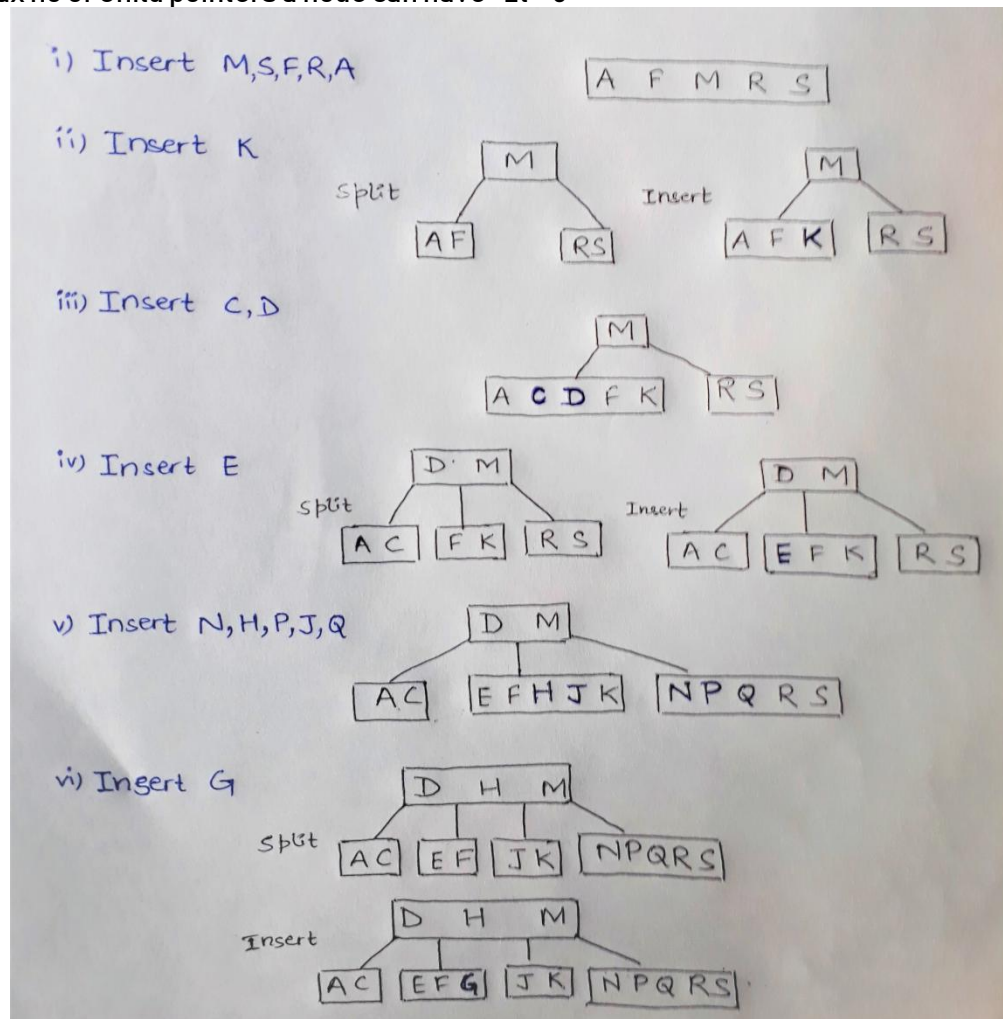 i) Insert M,S,F,R,A
A F M R S
ii) Insert K
Split
M
A F
RS
Insert
M
A F K
R S
iii) Insert C,D
M
A C D F K
R S
iv) Insert E
Split
D M
A C
F K
R S
Insert
D M
A C
E F K
R S
v) Insert N,H,P,J,Q
D M
AC
E F H J K
N P Q R S
vi) Insert G
D H M
Split
A C
E F
J K
NPQRS
D H M
Insert
A C
E F G
J K
N P Q R S